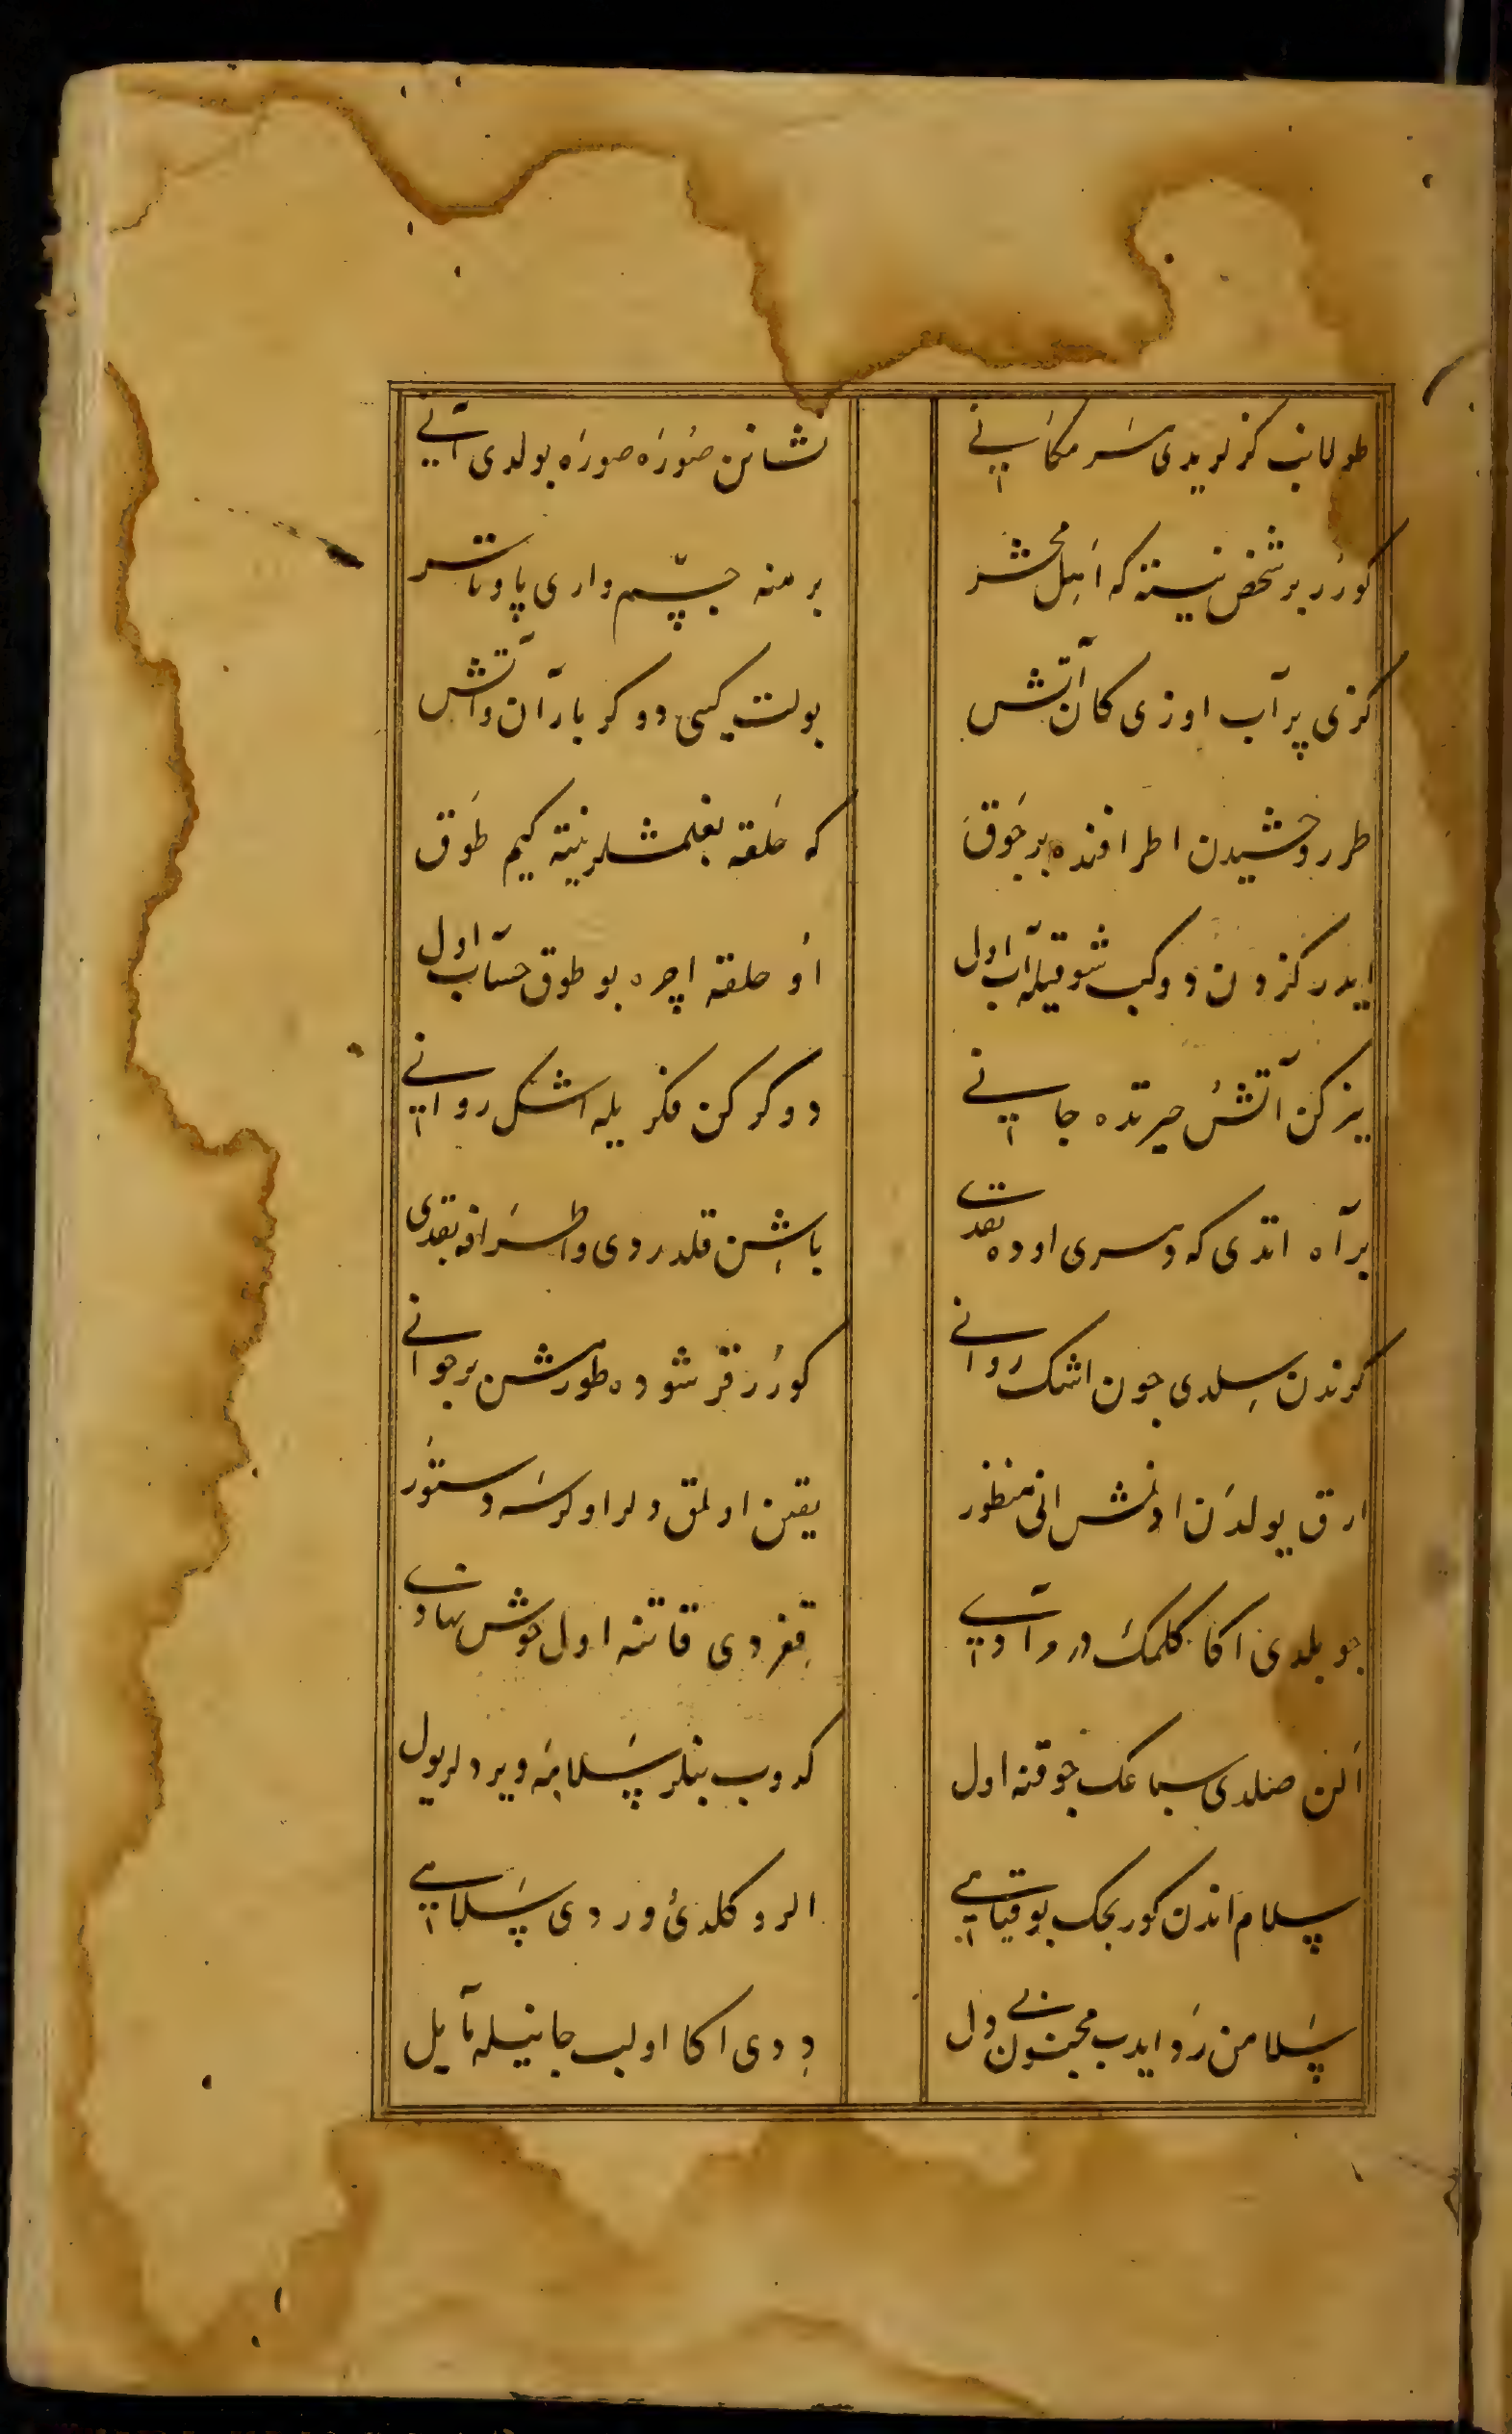 طولانب کزلریدی سر مکانی نشانن صوره صوره بولدی آنی
کورر بر شخص نیسته که اهل محشر برهنه جسم واری پا و تا سر
کزی پر آب اوزی کان آتش بولت کبی دوکر باران و آتش
طرر وحشیدن اطرافنده بر جوق که حلقه بغلمشلر نیته کیم طوق
ایدر کزدن دوکب شوقیله آب اول او حلقه اچره بو طوق حساب اول
یزکن آتش حیرتده جانی دوکرکن فکر یله اشک روانی
بر آه اتدی که دسری اوده بقدت باشن قلدردی و اطرافه بقدی
کزندن سلدی جون اشک روانی کورر قرشوده طورمش بر جوانی
ارق یولدن اونمش انی منظور یقین اولمق دلر اولرسه دستور
جو بلدی اکا کلمک در و آدی قغردی قاتنه اول خوش نهادی
الن صلدی سباعک جوقنه اول کدوب بنلر سلامه ویردلر یول
سلام اندن کوریجک بو قیامی الرو کلدی وردی سلامی
سلامن رد ایدب مجنون بی دل ددی اکا اولب جانیله مایل